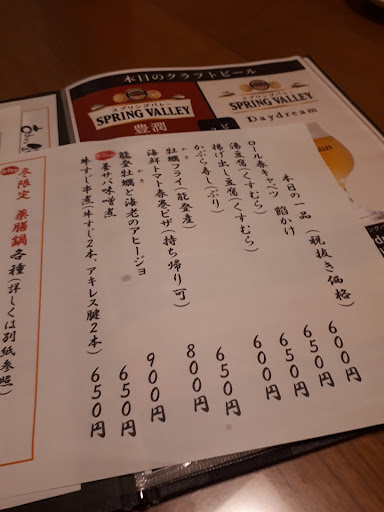 本日のクラフトビール
スプリングバレー
SPRING VALLEY
豊潤
スプリングバレー
SPRING VALLEY
Daydream
本日の一品 (税抜き価格)
ロール春キャベツ 餡かけ 600円
湯豆腐(くすむら) 650円
揚げ出し豆腐(くすむら) 650円
かぶら寿し(ぶり) 600円
牡蠣フライ(能登産) 650円
海鮮トマト春巻ピザ(持ち帰り可) 800円
能登牡蠣と海老のアヒージョ 900円
養サバ味噌煮 650円
牛すじ串煮(牛すじ2本、アキレス腱2本) 650円
冬限定 薬膳鍋各種(詳しくは別紙参照)